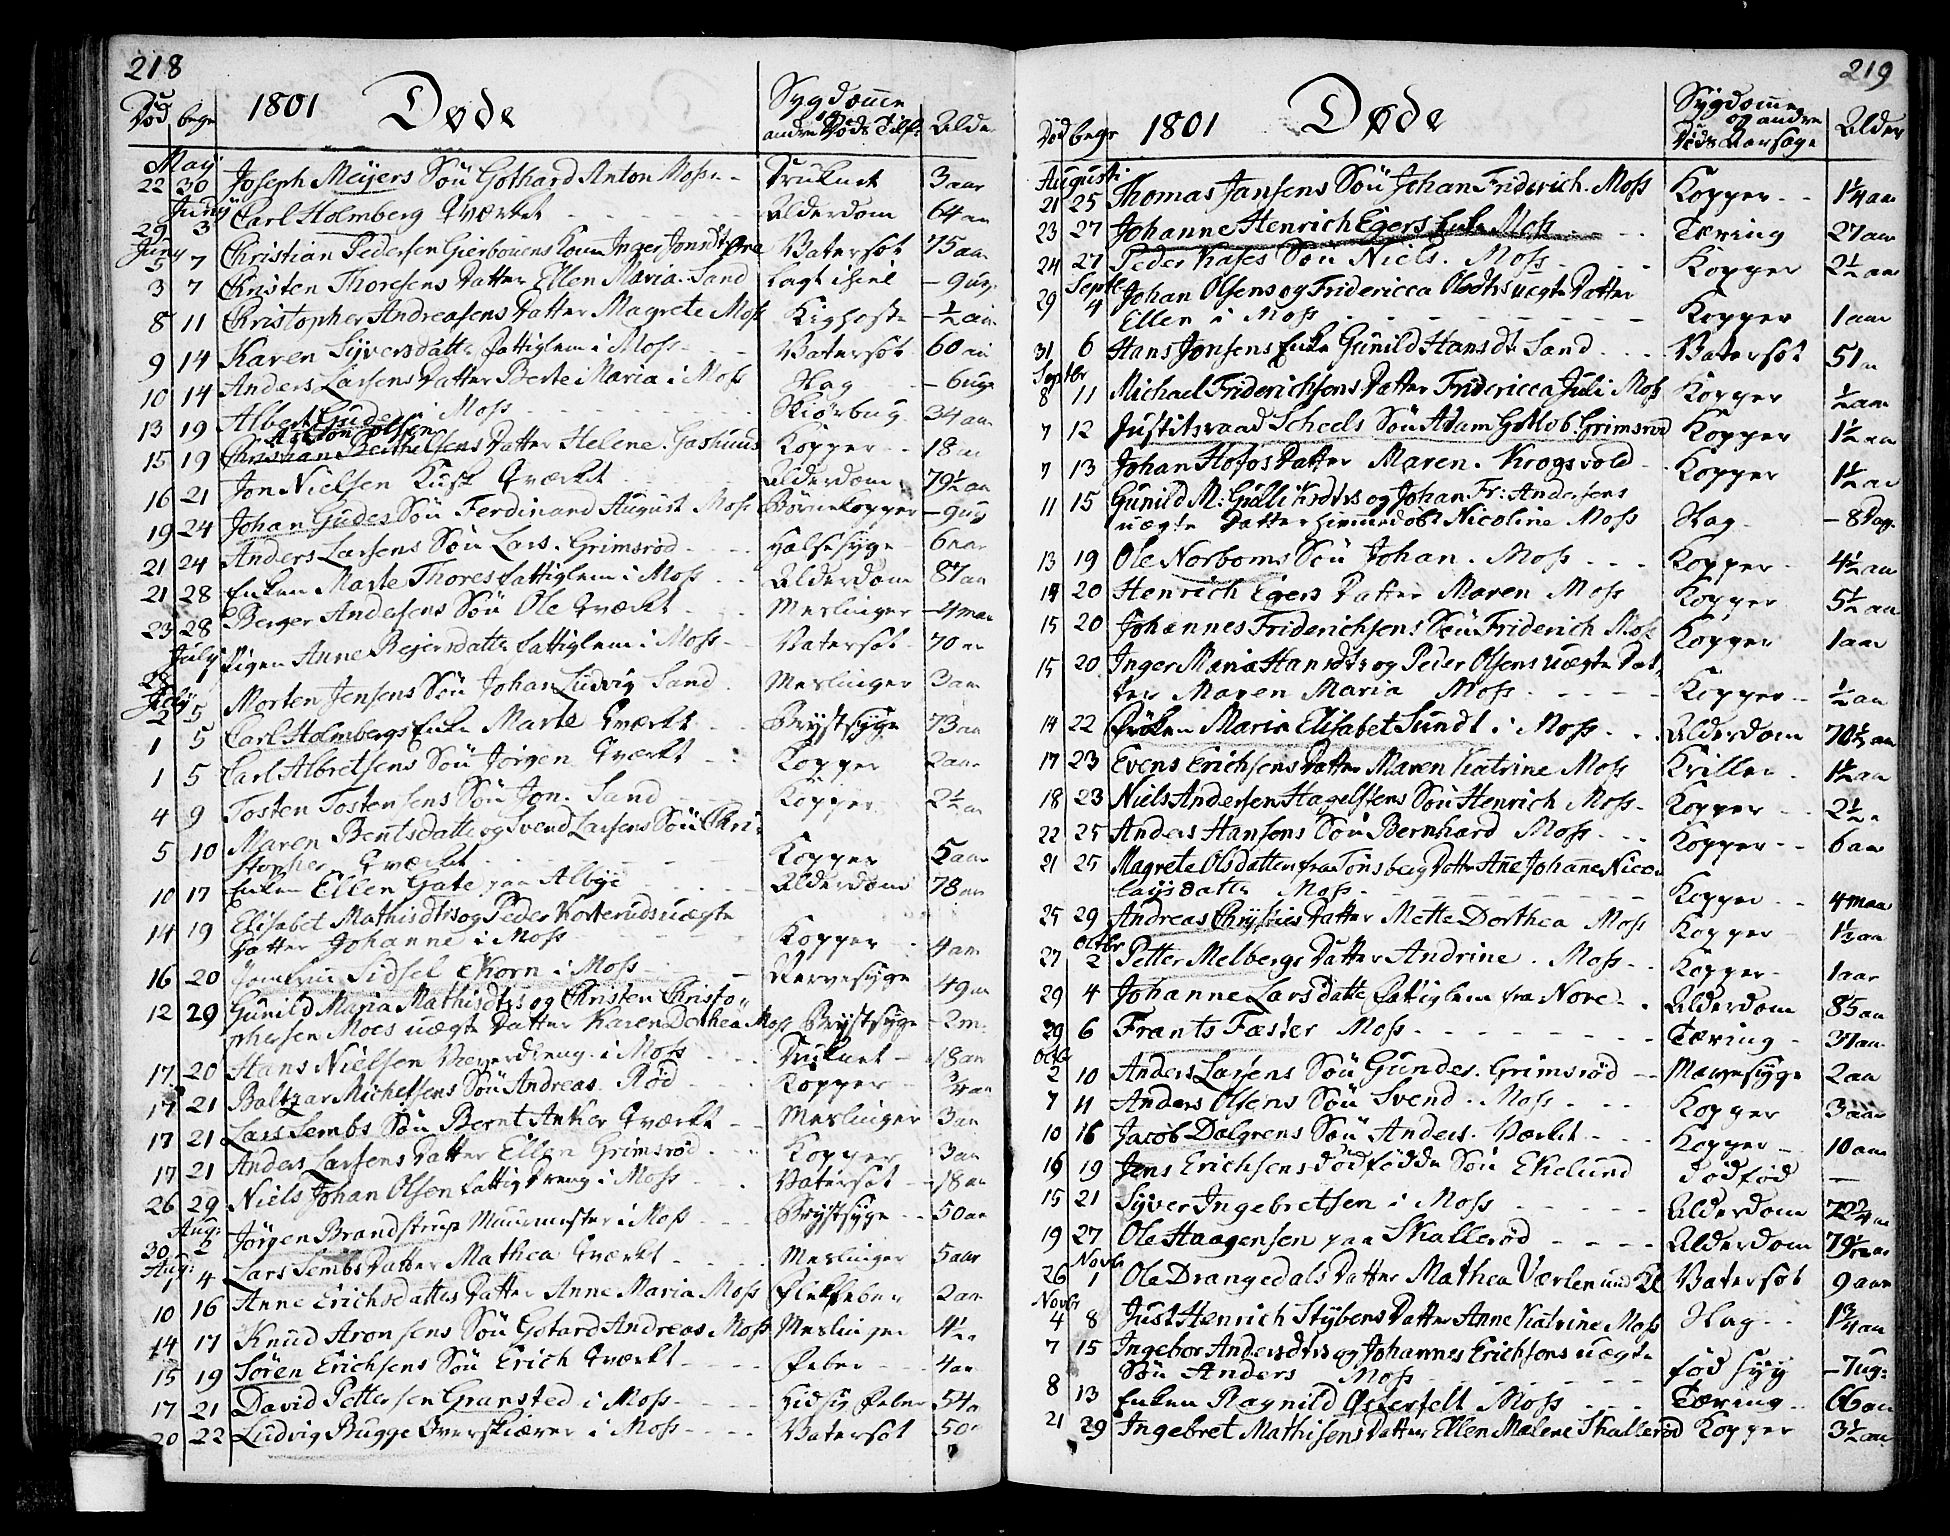 218
Død begr 1801 Døde Sygdomme andre Døds Tilf: Alder
May
22 30 Joseph Meijers Søn Gothard Anton Moss Druknet 3 aar
Juny
29 3 Carl Holmberg Værket Alderdom 64 aar
Juny
5 7 Christian Pedersen Kone Inger Jonsdtr Vatersot 75 aar
3 7 Christen Thoresens Datter Ellen Maria. Sand Lagt ihiel 9 ug:
8 11 Christopher Andreasens Datter Magrete Moss Kighoste ½ aar
9 14 Karen Syversdatter Fattiglem i Moss Vatersot 60 aar
10 14 Anders Larsens Datter Berte Maria i Moss Slag 6 uge
13 19 Albert Gude i Moss Skiørbug 34 aar
Anton Olsen
15 19 Christian Berthelsens Datter Helene. Kopper 18 aar
16 21 Jon Nielsen Kusk Værket Alderdom 79½ aar
19 24 Johan Gudes Søn Ferdinand August Moss Børnekopper 9 ug
21 24 Anders Larsens Søn Lars. Grimsrød Halsesyge 6 aar
21 28 Enken Marte Thores fattiglem i Moss Alderdom 87 aar
23 28 Berger Andersens Søn Ole Værket Meslinger 4 maan
July
28 1 Pigen Anne Reijersdatter fattiglem i Moss Vatersot 70 aar
July
2 5 Morten Jensens Søn Johan Ludvig Sand Meslinger 3 aar
1 5 Carl Holmbergs Enke Marte Værket Brystsyge 73 aar
1 5 Carl Albretsens Søn Jørgen Værket Kopper 2 aar
4 9 Tosten Tostensens Søn Jon. Sand Kopper 2½ aar
5 10 Maren Bentsdatter og Svend Larsens Søn Chri-
stopher Værket Kopper 5 aar
10 17 Enken Ellen Gate paa Albye Alderdom 78 aar
14 19 Elisabet Mathisdtrs og Peder Korteruds uægte
Datter Johanne i Moss Kopper 4 aar
16 20 Jomfrue Sidsel Korn i Moss Nervesyge 49 aar
12 29 Gunild Maria Mathisdtrs og Christen Christo-
phersen Moes uægte Datter Karen Dorthea Moss Brystsyge 2 m:
17 20 Hans Nielsen i Moss Druknet 18 aar
17 21 Baltzar Michelsens Søn Andreas. Rød Kopper ¾ aar
17 21 Lars Sembs Søn Bernt Anker Værket Meslinger 3 aar
17 21 Anders Larsens Datter Ellen Grimsrød Kopper 3 aar
26 29 Niels Johan Olsen fattig Dreng i Moss Vatersot 18 aar
Aug:
30 2 Jørgen Brandstrup Muurmester i Moss Brystsyge 50 aar
Aug:
1 4 Lars Sembs Datter Mathea Værket Meslinger 5 aar
10 16 Anne Erichsdatters Datter Anne Maria Moss 2 aar
14 17 Knud Aronsens Søn Gotard Andreas Moss Meslinger 4½
15 19 Søren Erichsens Søn Erich Værket Feber 4 aar
17 21 David Pettersen Gransted i Moss Hidsig Feber 54
20 22 Ludvig Bugge Overskiærer i Moss Vatersot 50
219
Død begr 1801 Døde Sygdomme og andre Døds Aarsage Alder
Augusti
21 25 Thomas Jansens Søn Johan Friderich. Moss Kopper 1¼ aar
23 27 Johanne Henrich Egers Enke Moss Tæring 27 aar
24 27 Peder Kases Søn Niels. Moss Kopper 2½ aar
Septbr
29 4 Johan Olsens og Fridericca Olsdtrs uægte Datter
Ellen i Moss Kopper 1 aar
31 6 Hans Jonsens Enke Gunild Hansdtr Sand Vatersot 51
Septbr
8 11 Michael Friderichsens Datter Fridericca Juli Moss Kopper ½ aar
7 12 Justitsraad Scheels Søn Adam Gottlob. Grimsrød Kopper 1½ aar
7 13 Johan Hofos Datter Maren. Krogsvold Kopper 1½ aar
11 15 Gunild M: Gulliksdtrs og Johan Fr: Andersens
uægte Datter hjemmedøbt Nicoline Moss Slag 8 Dag
13 19 Ole Norboms Søn Johan. Moss Kopper 4½ aar
14 20 Henrich Egers Datter Maren Moss Kopper 5½ aar
15 20 Johannes Friderichsens Søn Friderich Moss Kopper 1 aar
15 20 Inger Maria Hansdtrs og Peder Olsens uægte Dat-
ter Maren Maria Moss Kopper ½ aar
14 22 Frøken Maria Elisabet Sundt i Moss Alderdom 70½ aar
17 23 Evens Erichsens Datter Maren Katrine Moss Kriller 1½ aar
18 23 Niels Andersen Hagelstens Søn Henrich Moss Kopper 2½
22 25 Anders Hansens Søn Bernhard Moss Kopper 6 aar
21 25 Magrete Olsdatter fra Tønsberg Datter Ane Johanne Nico-
laysdatter Moss Kopper 4 maan
25 29 Andreas Chrysties Datter Mette Dorthea Moss Kopper 1⅓ aar
Octbr
27 2 Petter Melbergs Datter Andrine. Moss Kopper 1 aar
29 4 Johanne Larsdatter Fattiglem fra Nore Alderdom 85 aar
29 6 Frants Fæster Moss Tæring 37 aar
Octb
2 10 Anders Larsens Søn Gundes. Grimsrød Mavesyge 2 aar
7 11 Anders Olsens Søn Svend. Moss Kopper 3 aar
10 16 Jacob Dalgrens Søn Anders. Værket Kopper 10 aar
16 19 Jens Erichsens dødfødde Søn Ekelund Dødfød —
15 21 Syver Ingebretsen i Moss Alderdom 72¾ aar
19 27 Ole Haagensen paa Skallerød Alderdom 79½ aar
Novbr
26 1 Ole Drangedals Datter Mathea Værlen Vatersot 9 aar
Novbr
4 8 Just Henrich Stybens Datter Anne Katrine Moss Slag 1¾ aar
7 15 Ingebor Andersdtrs og Johannes Erichsens uægte
Søn Anders Moss fød syg 7 ug:
8 13 Enken Ragnild Østerfelt Moss Tæring 66 aar
21 29 Ingebret Mathisens Datter Ellen Malene Skallerød Kopper 3½ aar